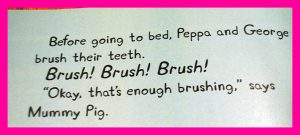 Before going to bed, Peppa and George
brush their teeth.
Brush! Brush! Brush!
"Okay, that's enough brushing," says
Mummy Pig.